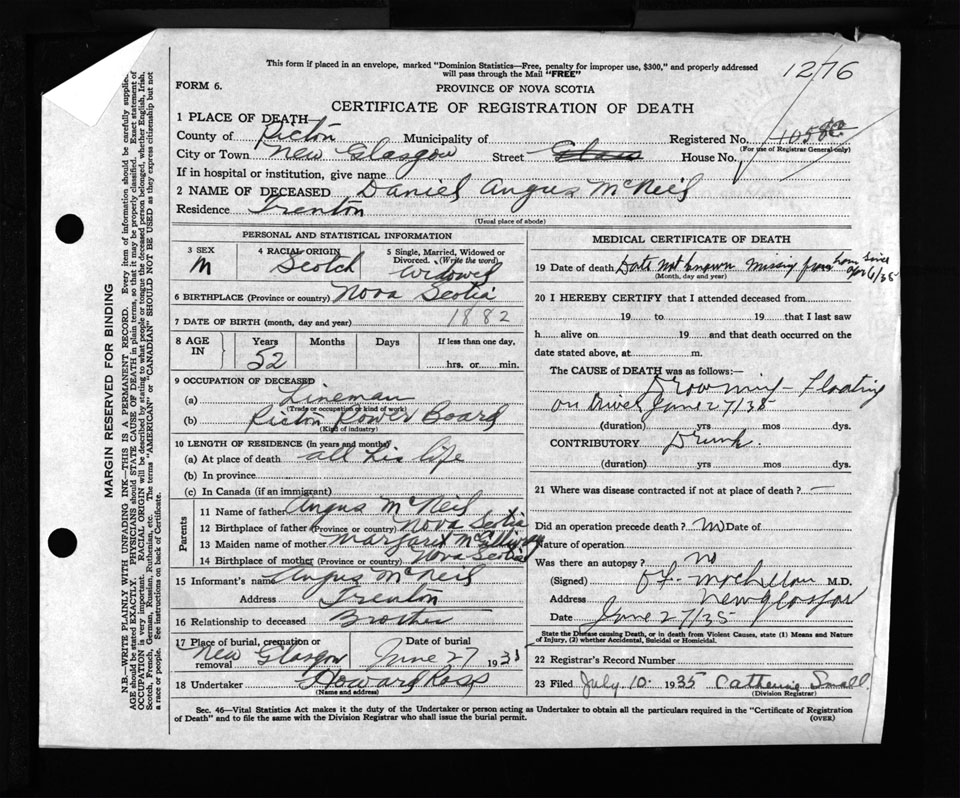 This form if placed in an envelope, marked "Dominion Statistics—Free, penalty for improper use, $300," and properly addressed
will pass through the Mail "FREE"
1276
FORM 6.
PROVINCE OF NOVA SCOTIA
CERTIFICATE OF REGISTRATION OF DEATH
1 PLACE OF DEATH
County of Pictou Municipality of Registered No.
(For use of Registrar General only)
City or Town New Glasgow Street House No.
If in hospital or institution, give name
2 NAME OF DECEASED Daniel Angus McNeil
Residence Trenton
(Usual place of abode)
PERSONAL AND STATISTICAL INFORMATION
3 SEX 4 RACIAL ORIGIN 5 Single, Married, Widowed or
Divorced. (Write the word)
M Scotch Widowed
6 BIRTHPLACE (Province or country) Nova Scotia
7 DATE OF BIRTH (month, day and year) 1882
8 AGE IN Years Months Days If less than one day,
52 hrs. or min.
9 OCCUPATION OF DECEASED
(a) Lineman
(Trade or occupation or kind of work)
(b) Pictou Power Board
(Kind of industry)
10 LENGTH OF RESIDENCE (in years and months)
(a) At place of death all his life
(b) In province
(c) In Canada (if an immigrant)
Parents
11 Name of father Angus McNeil
12 Birthplace of father (Province or country) Nova Scotia
13 Maiden name of mother Margaret
14 Birthplace of mother (Province or country) Nova Scotia
15 Informant's name Angus McNeil
Address Trenton
16 Relationship to deceased Brother
17 Place of burial, cremation or removal Date of burial
New Glasgow June 27 1935
18 Undertaker Howard Ross
(Name and address)
MEDICAL CERTIFICATE OF DEATH
19 Date of death Date not known missing from home since Apr 6/35
(Month, day and year)
20 I HEREBY CERTIFY that I attended deceased from
19 to 19 that I last saw
h alive on 19 and that death occurred on the
date stated above, at m.
The CAUSE of DEATH was as follows:—
Drowning – Floating
on River June 27/35
(duration) yrs mos dys.
CONTRIBUTORY Drunk.
(duration) yrs mos dys.
21 Where was disease contracted if not at place of death?
Did an operation precede death? no Date of
Nature of operation
Was there an autopsy? no
(Signed) M.D.
Address New Glasgow
Date June 27/35
State the Disease causing Death, or in death from Violent Causes, state (1) Means and Nature
of Injury, (2) whether Accidental, Suicidal or Homicidal.
22 Registrar's Record Number
23 Filed July 10 1935 Catherine Small
(Division Registrar)
Sec. 46—Vital Statistics Act makes it the duty of the Undertaker or person acting as Undertaker to obtain all the particulars required in the "Certificate of Registration
of Death" and to file the same with the Division Registrar who shall issue the burial permit.
(OVER)
MARGIN RESERVED FOR BINDING
N.B.—WRITE PLAINLY WITH UNFADING INK—THIS IS A PERMANENT RECORD. Every item of information should be carefully supplied.
AGE should be stated EXACTLY. PHYSICIANS should STATE CAUSE OF DEATH in plain terms, so that it may be properly classified. Exact statement of
OCCUPATION is very important. RACIAL ORIGIN will be described by stating to what people or tongue the deceased person belonged, whether English, Irish,
Scotch, French, German, Russian, Ruthenian, etc. The terms "AMERICAN" or "CANADIAN" SHOULD NOT BE USED as they express citizenship but not
a race or people. See instructions on back of Certificate.